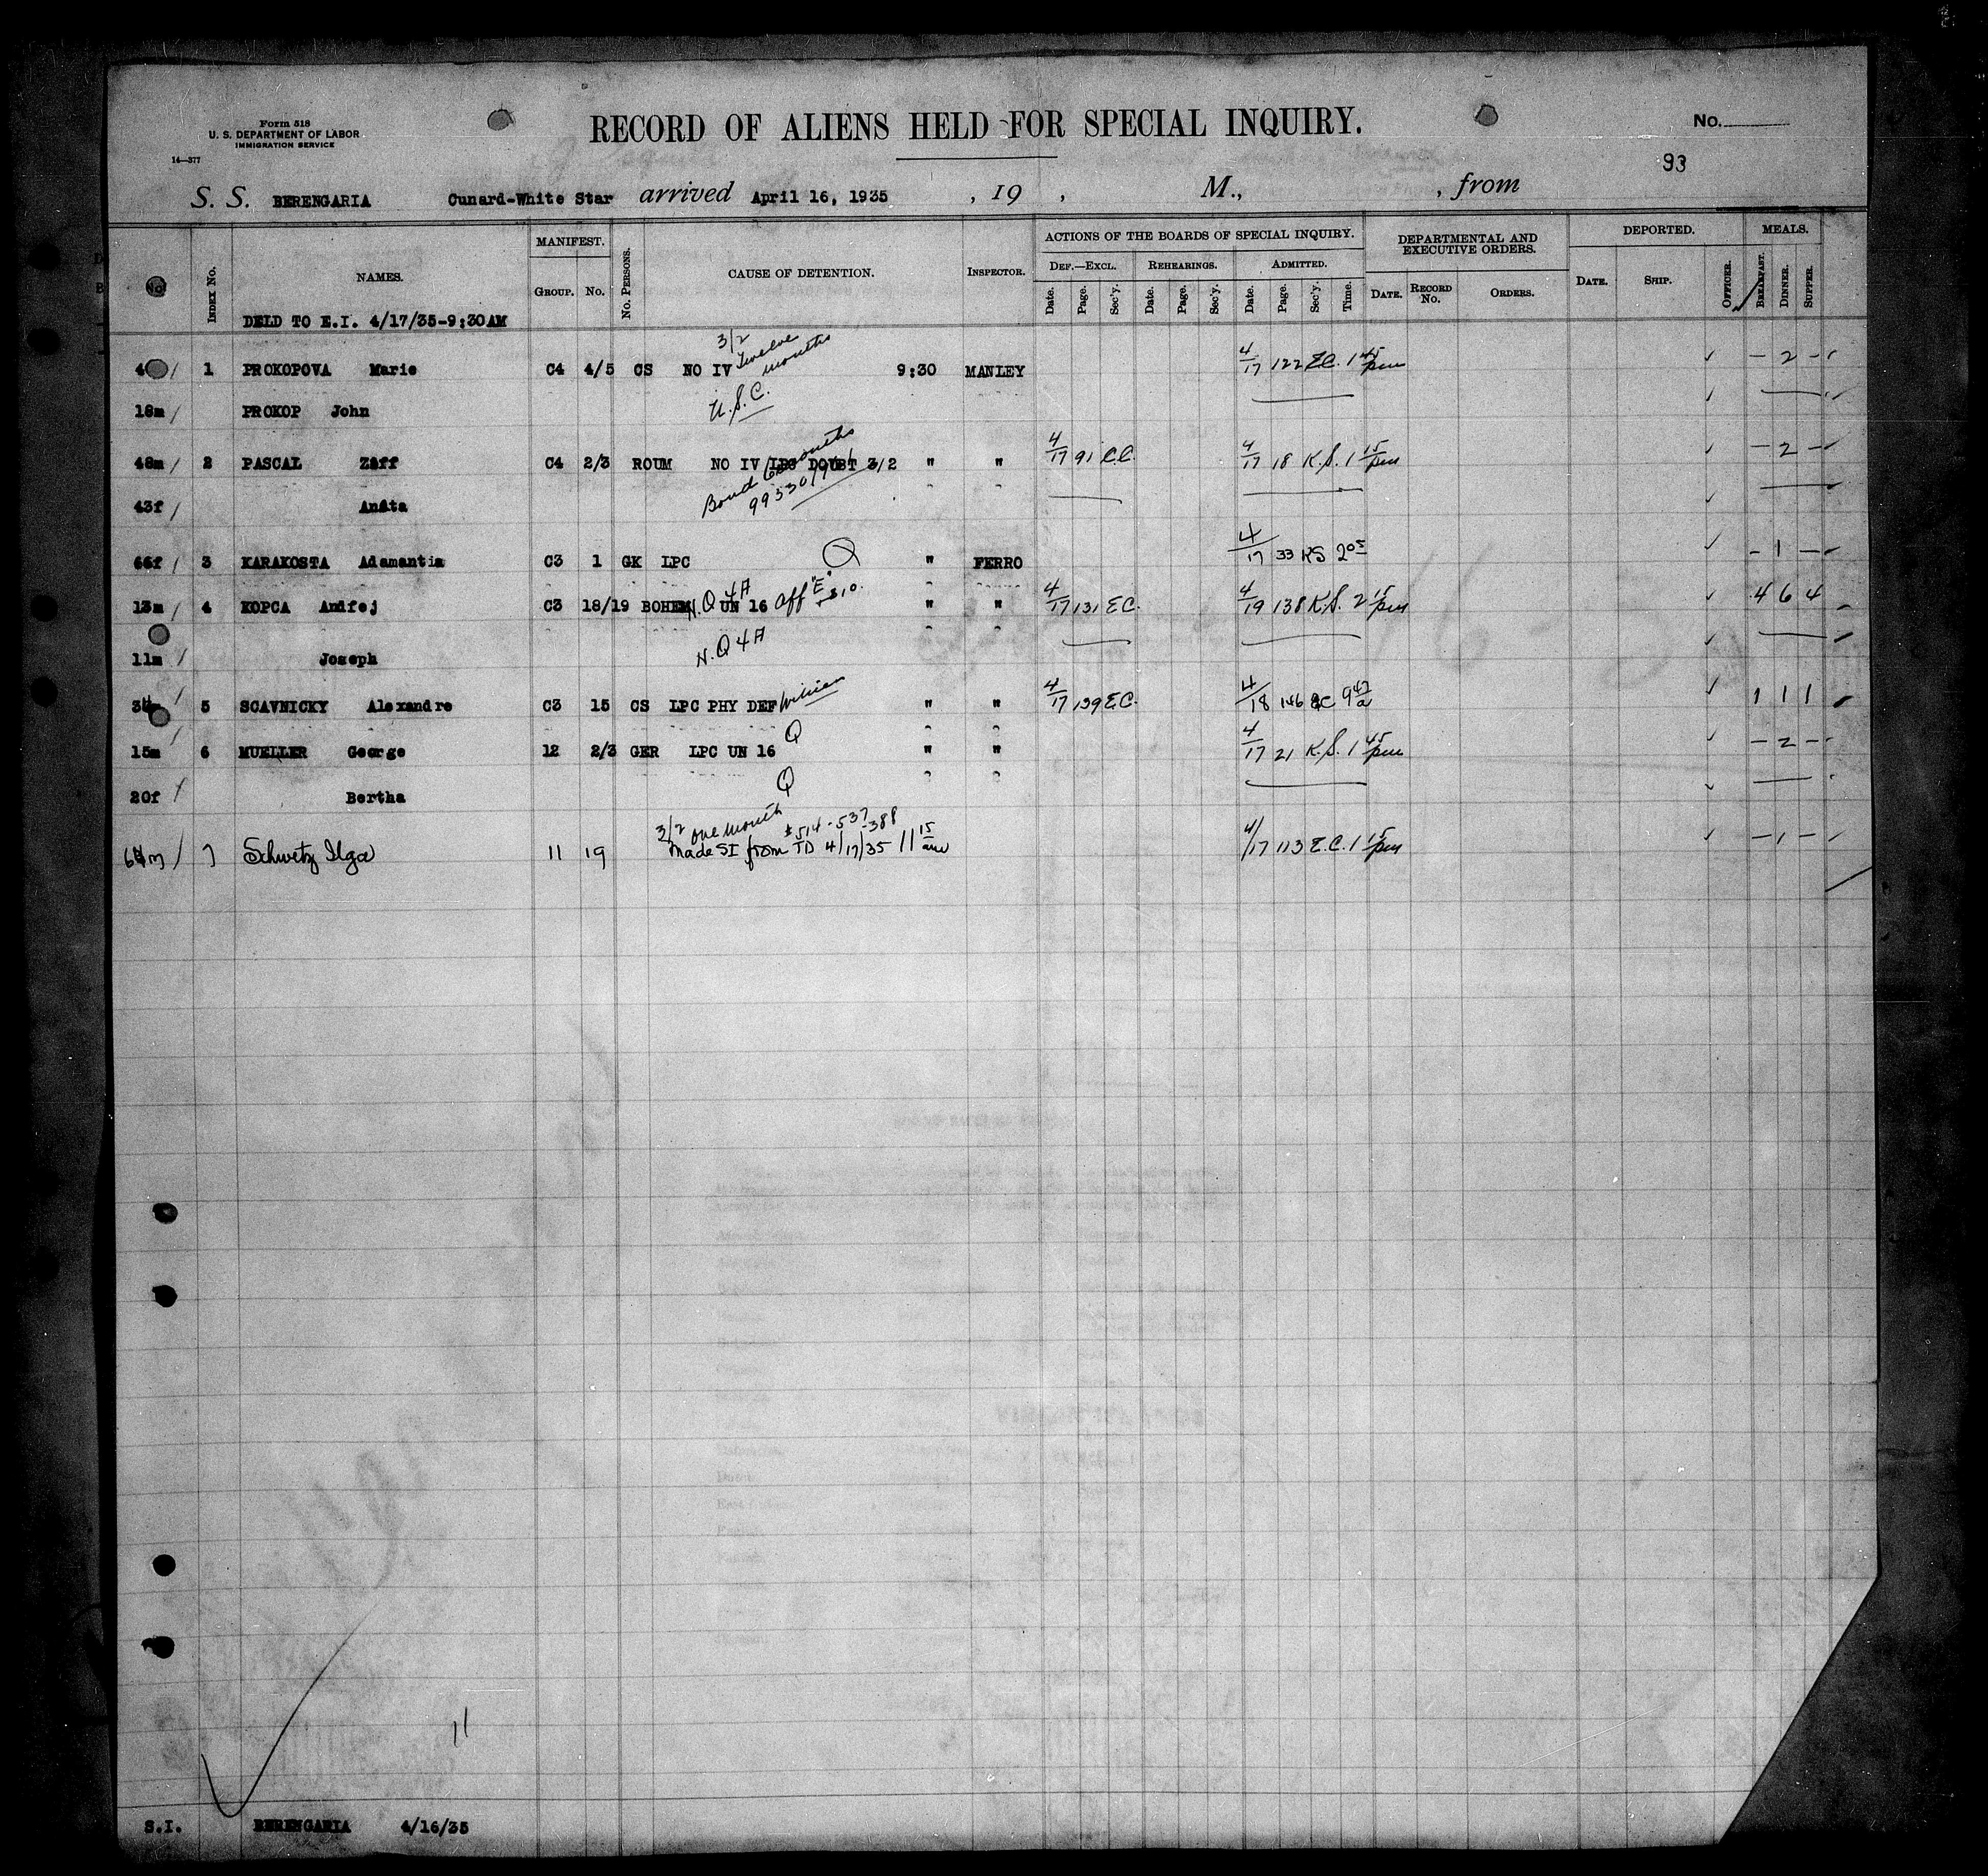 Form 518
U. S. DEPARTMENT OF LABOR
IMMIGRATION SERVICE
14—377
RECORD OF ALIENS HELD FOR SPECIAL INQUIRY.
No.
93
S. S. BERENGARIA Cunard-White Star arrived April 16, 1935 , 19 , M., , from
MANIFEST. ACTIONS OF THE BOARDS OF SPECIAL INQUIRY. DEPARTMENTAL AND EXECUTIVE ORDERS. DEPORTED. MEALS.
No. INDEX NO. NAMES. GROUP. NO. NO. PERSONS. CAUSE OF DETENTION. INSPECTOR. DEF.—EXCL. REHEARINGS. ADMITTED.
Date. Page. Sec'y. Date. Page. Sec'y. Date. Page. Sec'y. Time. DATE. RECORD NO. ORDERS. DATE. SHIP. OFFICER. BREAKFAST. DINNER. SUPPER.
DELD TO E.I. 4/17/35-9:30AM
3/2 Twelve months
1 PROKOPOVA Marie C4 4/5 CS NO IV 9:30 MANLEY 4/17 122 E.C. 1 45 pm - 2 -
18m PROKOP John U.S.C.
48m 2 PASCAL Zaff C4 2/3 ROUM NO IV LPC DOUBT 3/2 " " 4/17 91 E.C. 4/17 18 K.S. 1 15 pm - 2 -
Bond 6 months
43f Anita
66f 3 KARAKOSTA Adamantia C3 1 GK LPC Q " FERRO 4/17 33 KS 2 05 - 1 -
13m 4 KOPCA Andfej C3 18/19 BOHEM N.Q 4A UN 16 aff "E" $10. " " 4/17 131 E.C. 4/19 138 K.S. 2 15 pm 4 6 4
11m Joseph N.Q 4A
5 SCAVNICKY Alexandre C3 15 CS LPC PHY DEF " " 4/17 139 E.C. 4/18 146 EC 9 42 a 1 1 1
15m 6 MUELLER George 12 2/3 GER LPC UN 16 Q " " 4/17 21 K.S. 1 45 pm - 2 -
20f Bertha Q
3/2 one month $514-537-388
7 Schwetz Ilga 11 19 Made SI from TD 4/17/35 11 15 am 4/17 113 E.C. 1 15 pm - 1 -
11
S.I. BERENGARIA 4/16/35